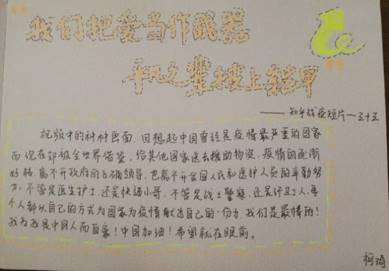 我们把爱当作武器
平凡之辈披上铠甲
——知乎战疫短片—三十五
视频中的种种画面,回想起中国曾经是疫情最严重的国家
而现在却被全世界借鉴,给其他国家送去援助物资,疫情的逐渐
好转离不开政府的正确领导,也离不开全国人民和医护人员的辛勤努
力,不管是医生护士,还是快递小哥,不管是战士警察,还是环卫工人,每
个人都以自己的方式为国家为疫情献出自己的一份力,我们是最棒的!
我为我是中国人而自豪!中国加油!希望就在眼前。
柯琦